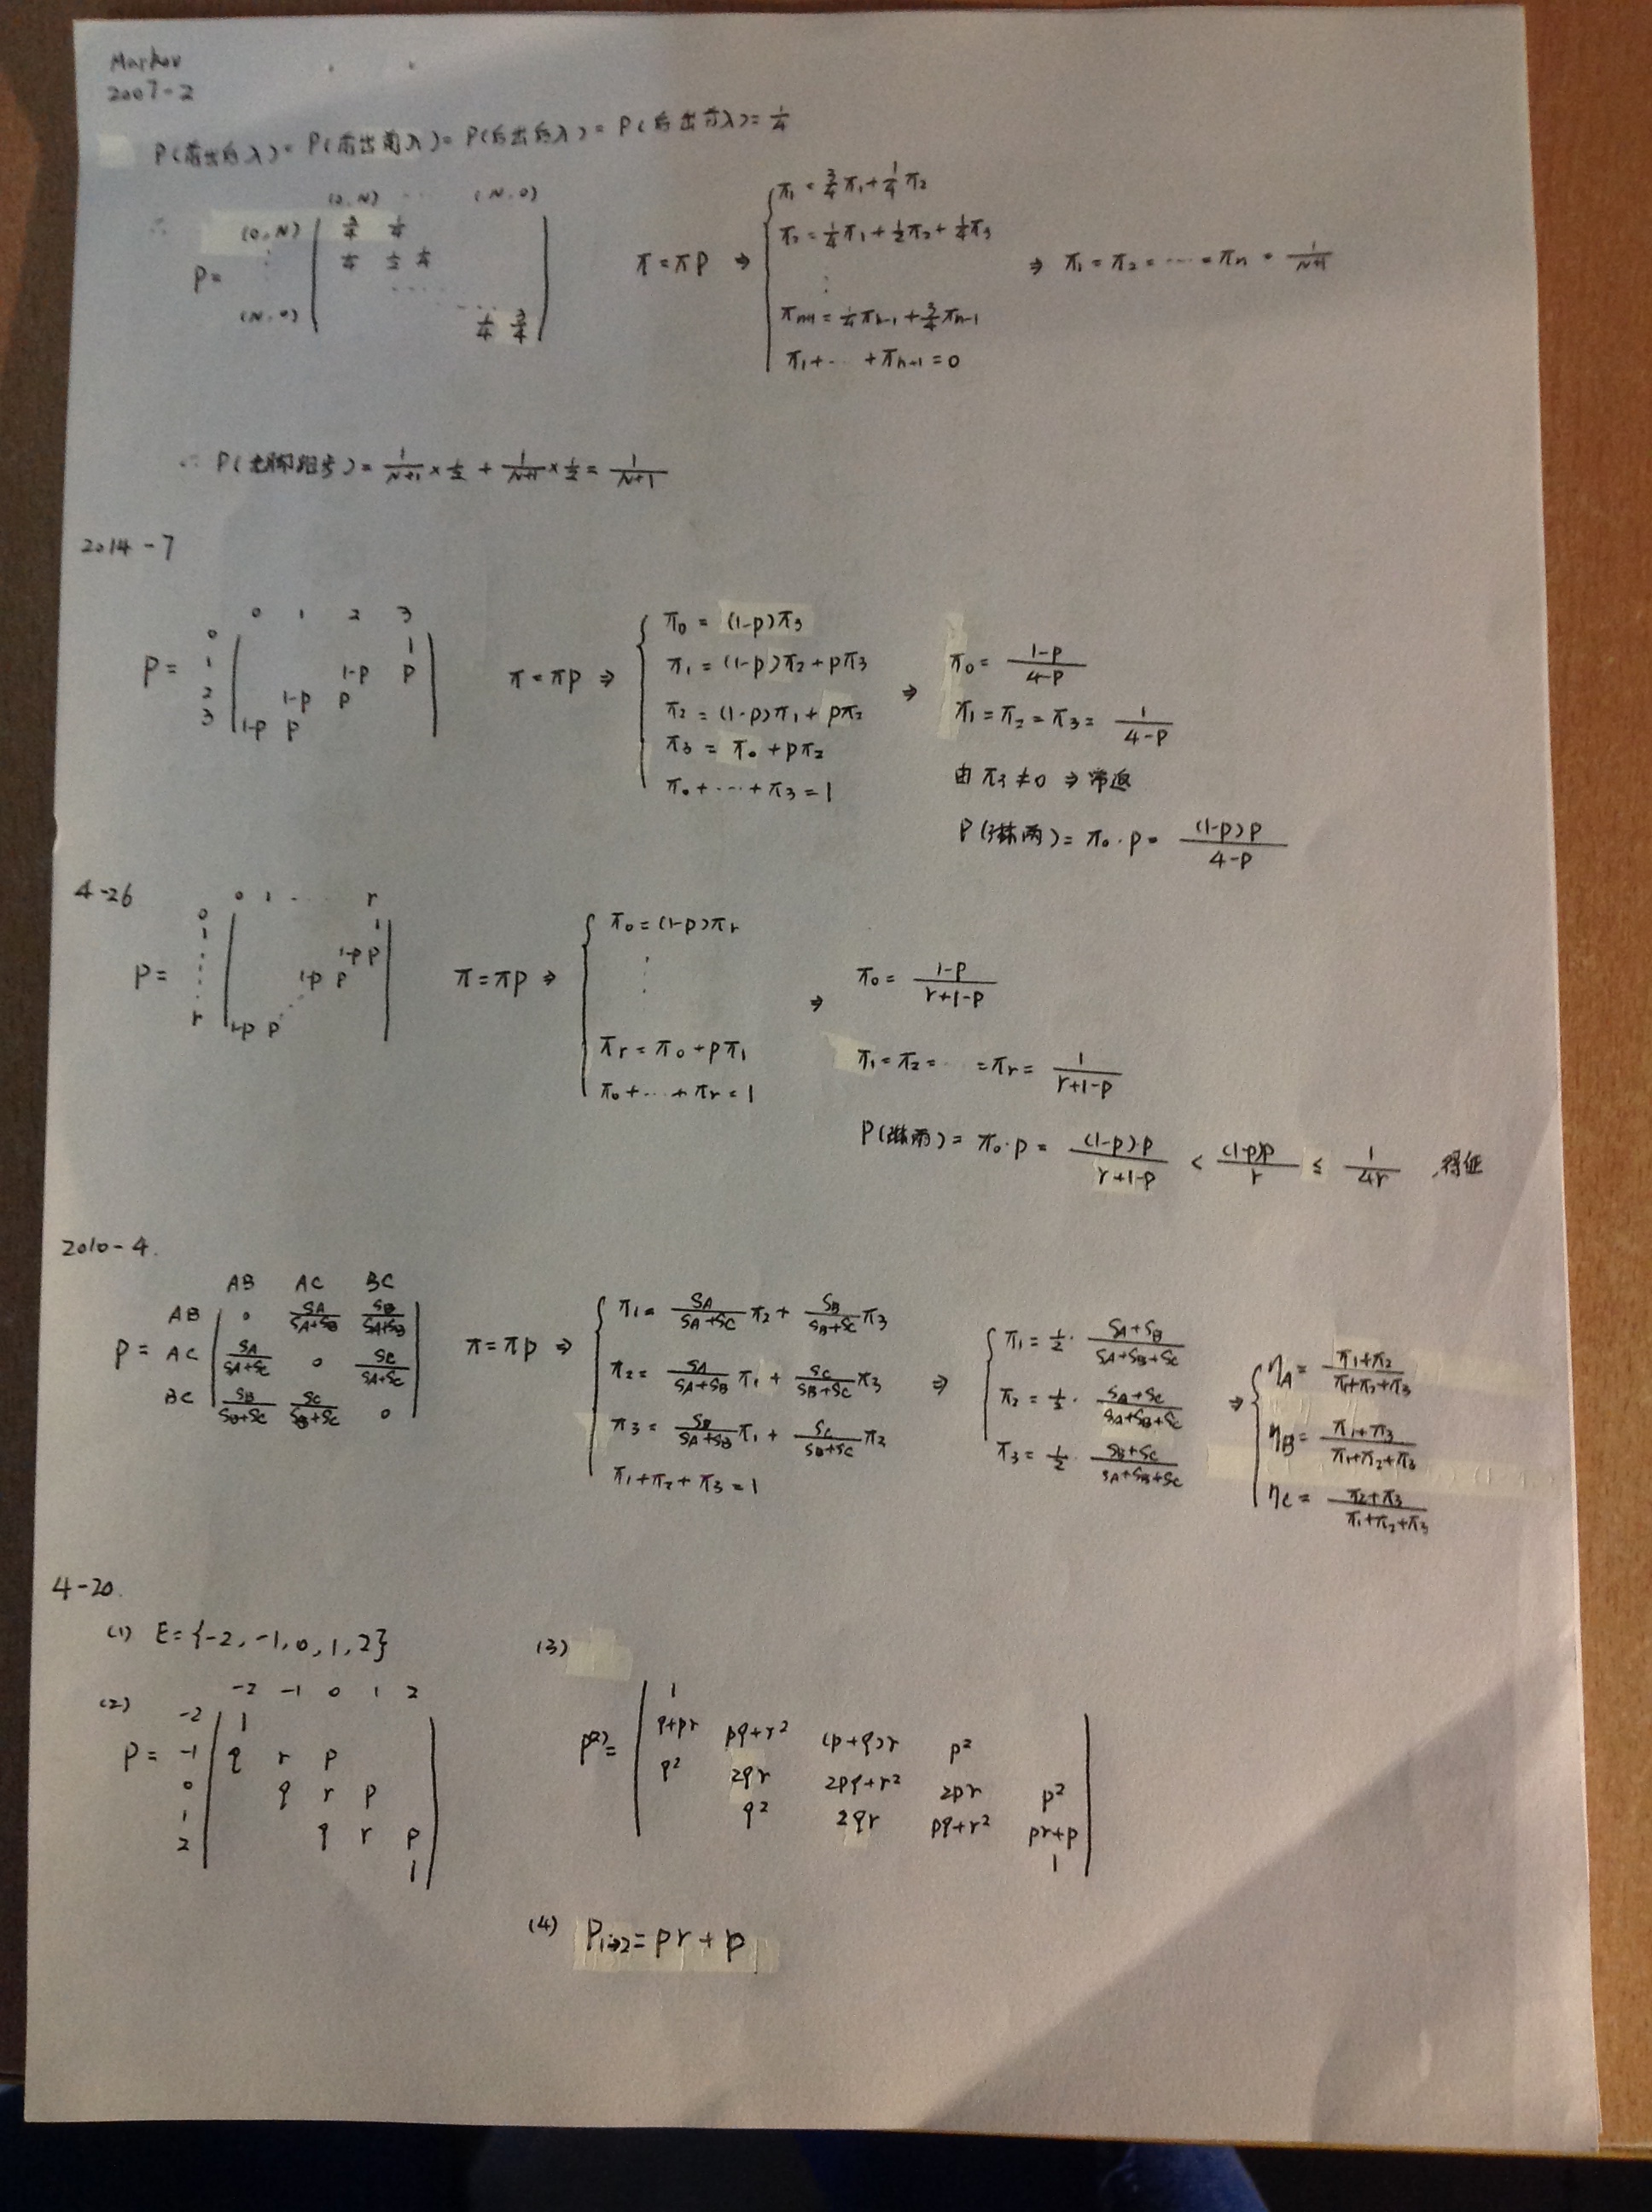 Markov
2007-2
P(前出后入)=P(前出前入)=P(后出后入)=P(后出前入)=1/4
(0,N) ... (N,0)
(0,N) 3/4 1/4
P= ⋮ 1/4 1/2 1/4
......
(N,0) 1/4 3/4
π=πP ⇒
π₁=3/4π₁+1/4π₂
π₂=1/4π₁+1/2π₂+1/4π₃
⋮
πₙ₊₁=1/4πₙ₋₁+3/4πₙ₋₁
π₁+...+πₙ₊₁=0
⇒ π₁=π₂=...=πₙ=1/(N+1)
∴ P(赤脚跑步)=1/(N+1)×1/2+1/(N+1)×1/2=1/(N+1)
2014-7
0 1 2 3
0 1
P= 1 1-p p
2 1-p p
3 1-p p
π=πp ⇒
π₀=(1-p)π₃
π₁=(1-p)π₂+pπ₃
π₂=(1-p)π₁+pπ₂
π₃=π₀+pπ₂
π₀+...+π₃=1
⇒ π₀=(1-p)/(4-p)
π₁=π₂=π₃=1/(4-p)
由π₃≠0⇒常返
P(淋雨)=π₀·p=(1-p)p/(4-p)
4-26
0 1 ... r
0 1
1 1-p p
P= ⋮ 1-p p
r 1-p p
π=πp ⇒
π₀=(1-p)πr
⋮
πr=π₀+pπ₁
π₀+...+πr=1
⇒ π₀=(1-p)/(r+1-p)
π₁=π₂=...=πr=1/(r+1-p)
P(淋雨)=π₀·p=(1-p)·p/(r+1-p)<(1-p)p/r≤1/4r 得证
2010-4.
AB AC BC
AB 0 SA/(SA+SB) SB/(SA+SB)
P= AC SA/(SA+SC) 0 SC/(SA+SC)
BC SB/(SB+SC) SC/(SB+SC) 0
π=πp ⇒
π₁=SA/(SA+SC)π₂+SB/(SB+SC)π₃
π₂=SA/(SA+SB)π₁+SC/(SB+SC)π₃
π₃=SB/(SA+SB)π₁+SC/(SB+SC)π₂
π₁+π₂+π₃=1
⇒ π₁=1/2·(SA+SB)/(SA+SB+SC)
π₂=1/2·(SA+SC)/(SA+SB+SC)
π₃=1/2·(SB+SC)/(SA+SB+SC)
⇒ ηA=(π₁+π₂)/(π₁+π₂+π₃)
ηB=(π₁+π₃)/(π₁+π₂+π₃)
ηC=(π₂+π₃)/(π₁+π₂+π₃)
4-20.
(1) E={-2,-1,0,1,2}
(2) -2 -1 0 1 2
-2 1
P= -1 q r p
0 q r p
1 q r p
2 1
(3)
1
P⁽²⁾= q+pr pq+r² (p+q)r p²
q² 2qr 2pq+r² 2pr p²
q² 2qr pq+r² pr+p
1
(4) P₁→₂=pr+p